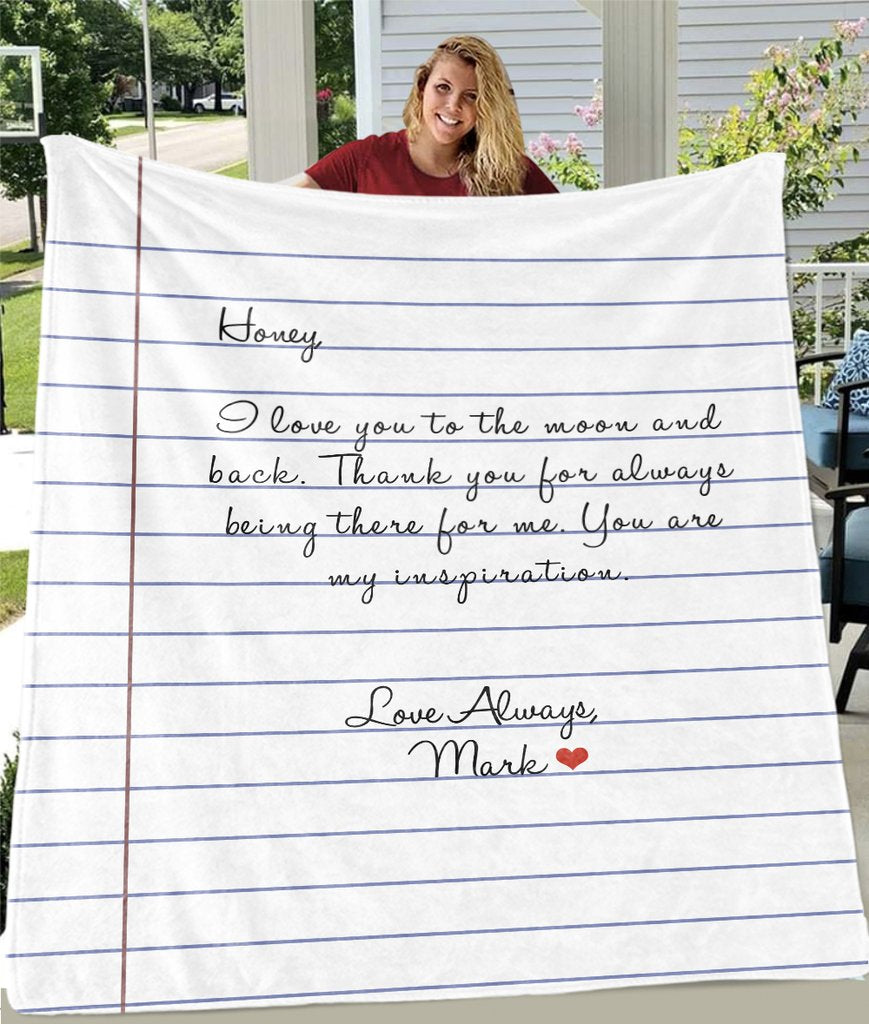 Honey,
I love you to the moon and
back. Thank you for always
being there for me. You are
my inspiration.
Love Always,
Mark